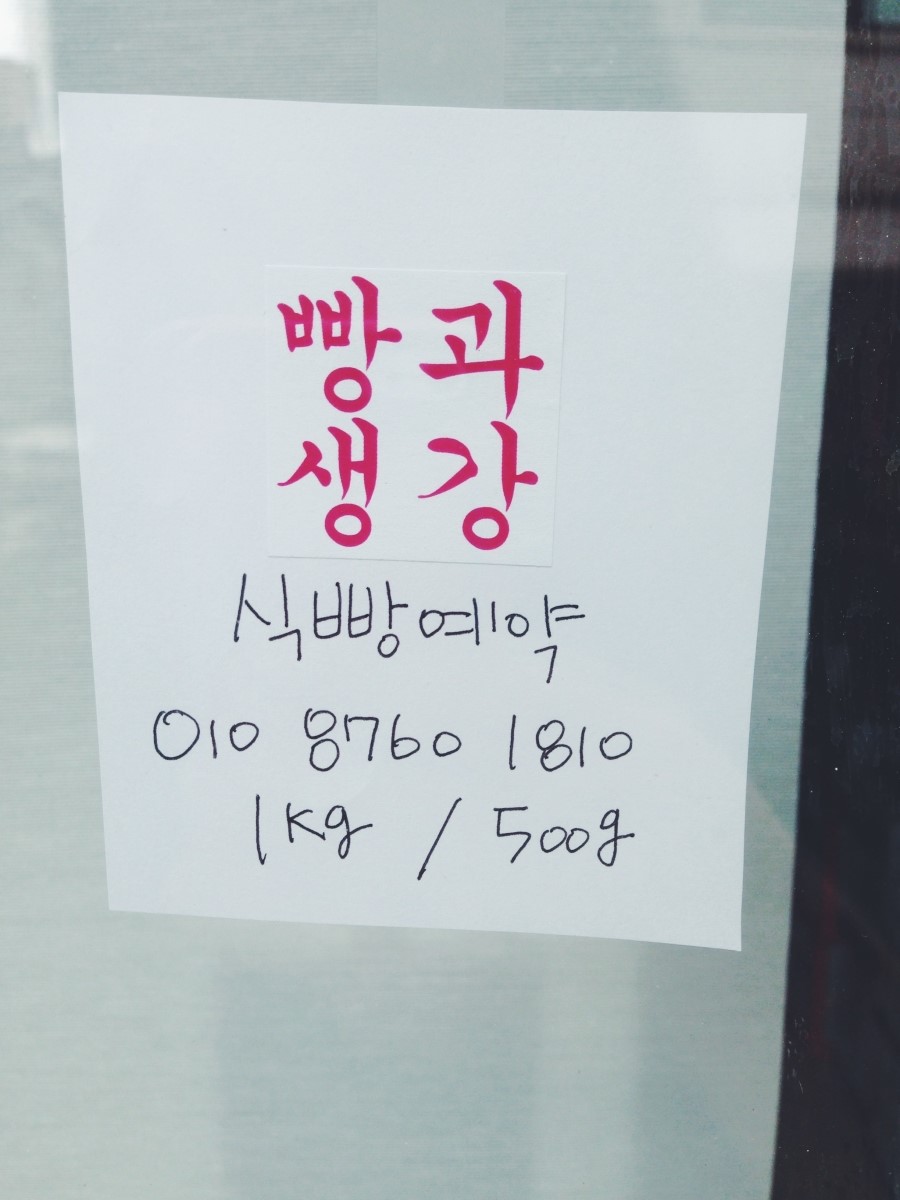 빵과
생강
식빵예약
010 8760 1810
1Kg / 500g